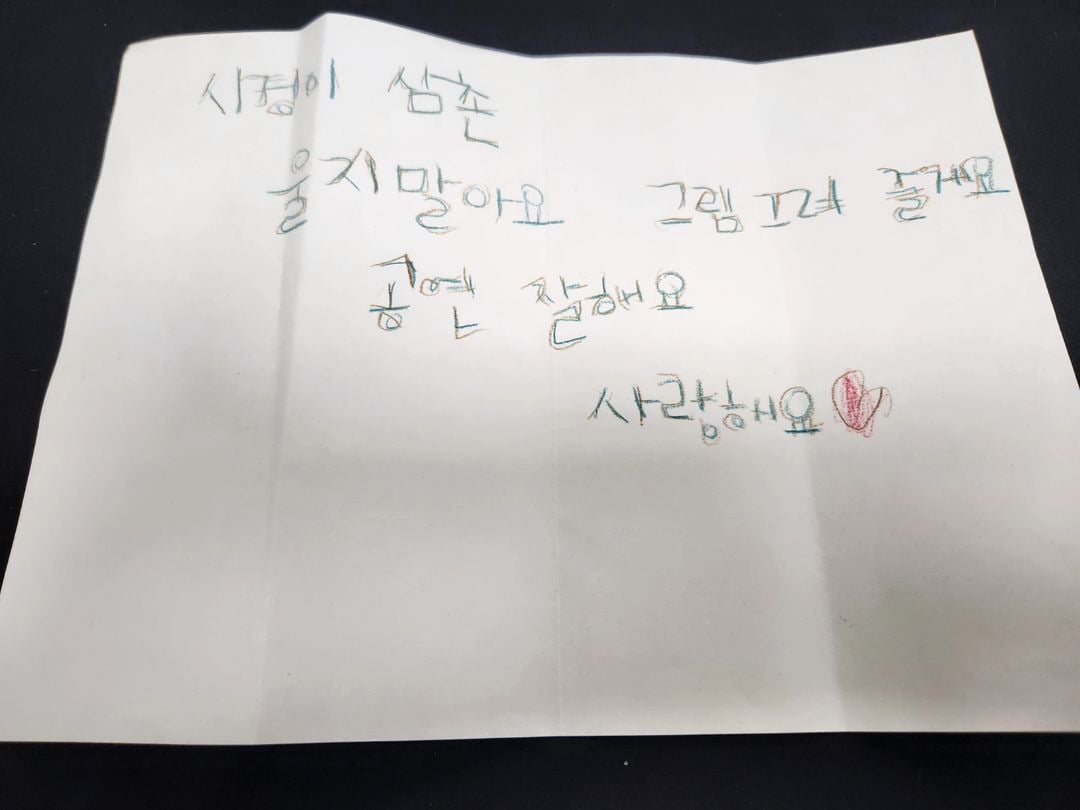 시경이 삼촌
울지말아요 그렘 그려 줄게요
공연 잘해요
사랑해요